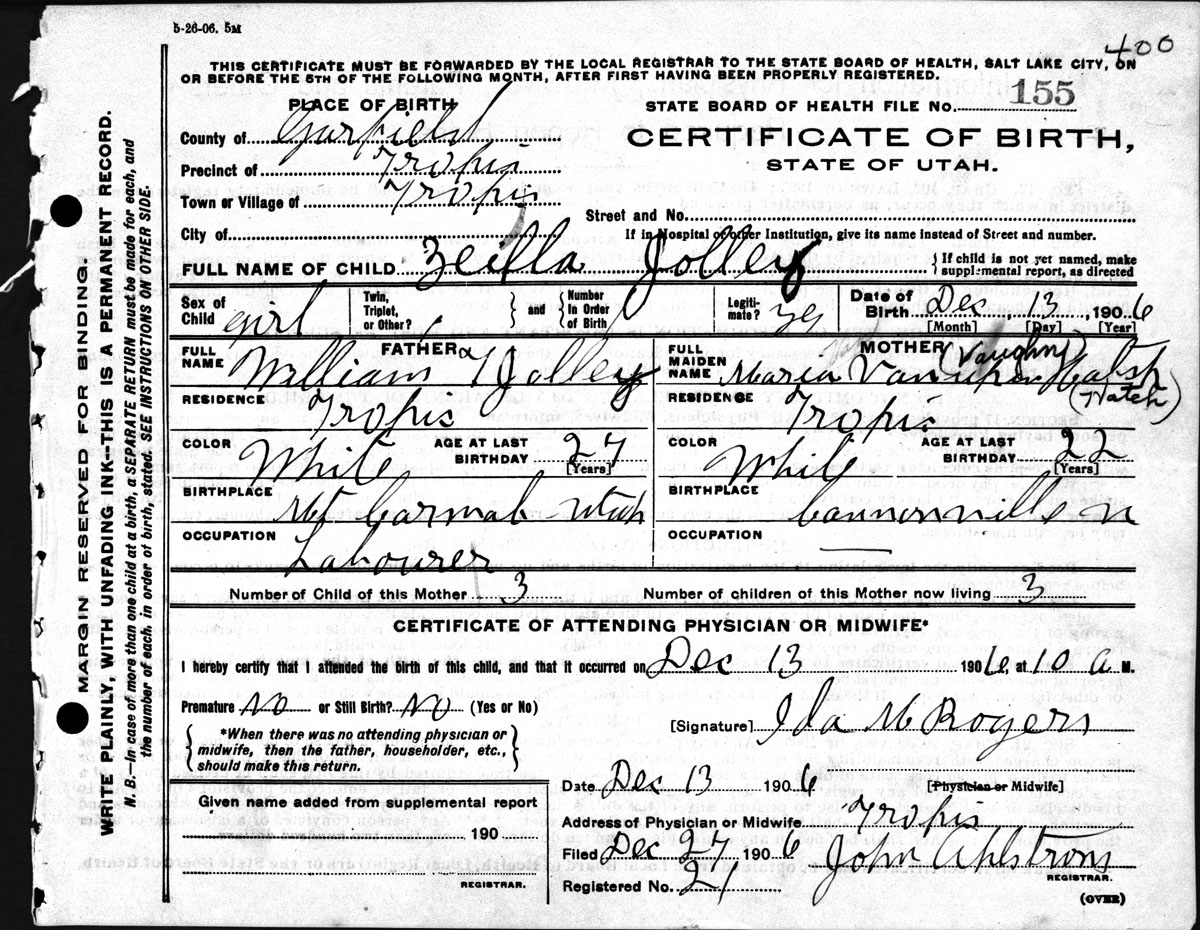 5-26-06. 5M
400
THIS CERTIFICATE MUST BE FORWARDED BY THE LOCAL REGISTRAR TO THE STATE BOARD OF HEALTH, SALT LAKE CITY, ON
OR BEFORE THE 5TH OF THE FOLLOWING MONTH, AFTER FIRST HAVING BEEN PROPERLY REGISTERED.
PLACE OF BIRTH
STATE BOARD OF HEALTH FILE No. 155
County of Garfield
CERTIFICATE OF BIRTH,
STATE OF UTAH.
Precinct of Tropic
Town or Village of Tropic
Street and No.
City of
If in Hospital or other Institution, give its name instead of Street and number.
FULL NAME OF CHILD Zeilla Jolley { If child is not yet named, make
supplemental report, as directed
Sex of
Child girl
Twin,
Triplet,
or Other?
} and {
Number
In Order
of Birth
Legiti-
mate? yes
Date of
Birth Dec 13, 1906
[Month] [Day] [Year]
FATHER
FULL
NAME William J Jolley
RESIDENCE Tropic
COLOR White AGE AT LAST
BIRTHDAY 27
[Years]
BIRTHPLACE
Mt Carmal Utah
OCCUPATION
Labourer
MOTHER
FULL
MAIDEN
NAME Maria
(Vaughn)
(Hatch)
RESIDENCE Tropic
COLOR White AGE AT LAST
BIRTHDAY 22
[Years]
BIRTHPLACE
Cannonville U
OCCUPATION
Number of Child of this Mother 3 Number of children of this Mother now living 3
CERTIFICATE OF ATTENDING PHYSICIAN OR MIDWIFE*
I hereby certify that I attended the birth of this child, and that it occurred on Dec 13 1906, at 10 a M.
Premature No or Still Birth? No (Yes or No)
[Signature] Ida M Rogers
{ *When there was no attending physician or
midwife, then the father, householder, etc.,
should make this return. }
Date Dec 13 1906 [Physician or Midwife]
Given name added from supplemental report
190
REGISTRAR.
Address of Physician or Midwife Tropic
Filed Dec 27 1906 John Ahlstrom
REGISTRAR.
Registered No. 21
(OVER)
MARGIN RESERVED FOR BINDING.
WRITE PLAINLY, WITH UNFADING INK--THIS IS A PERMANENT RECORD.
N. B.—In case of more than one child at a birth, a SEPARATE RETURN must be made for each, and
the number of each, in order of birth, stated. SEE INSTRUCTIONS ON OTHER SIDE.